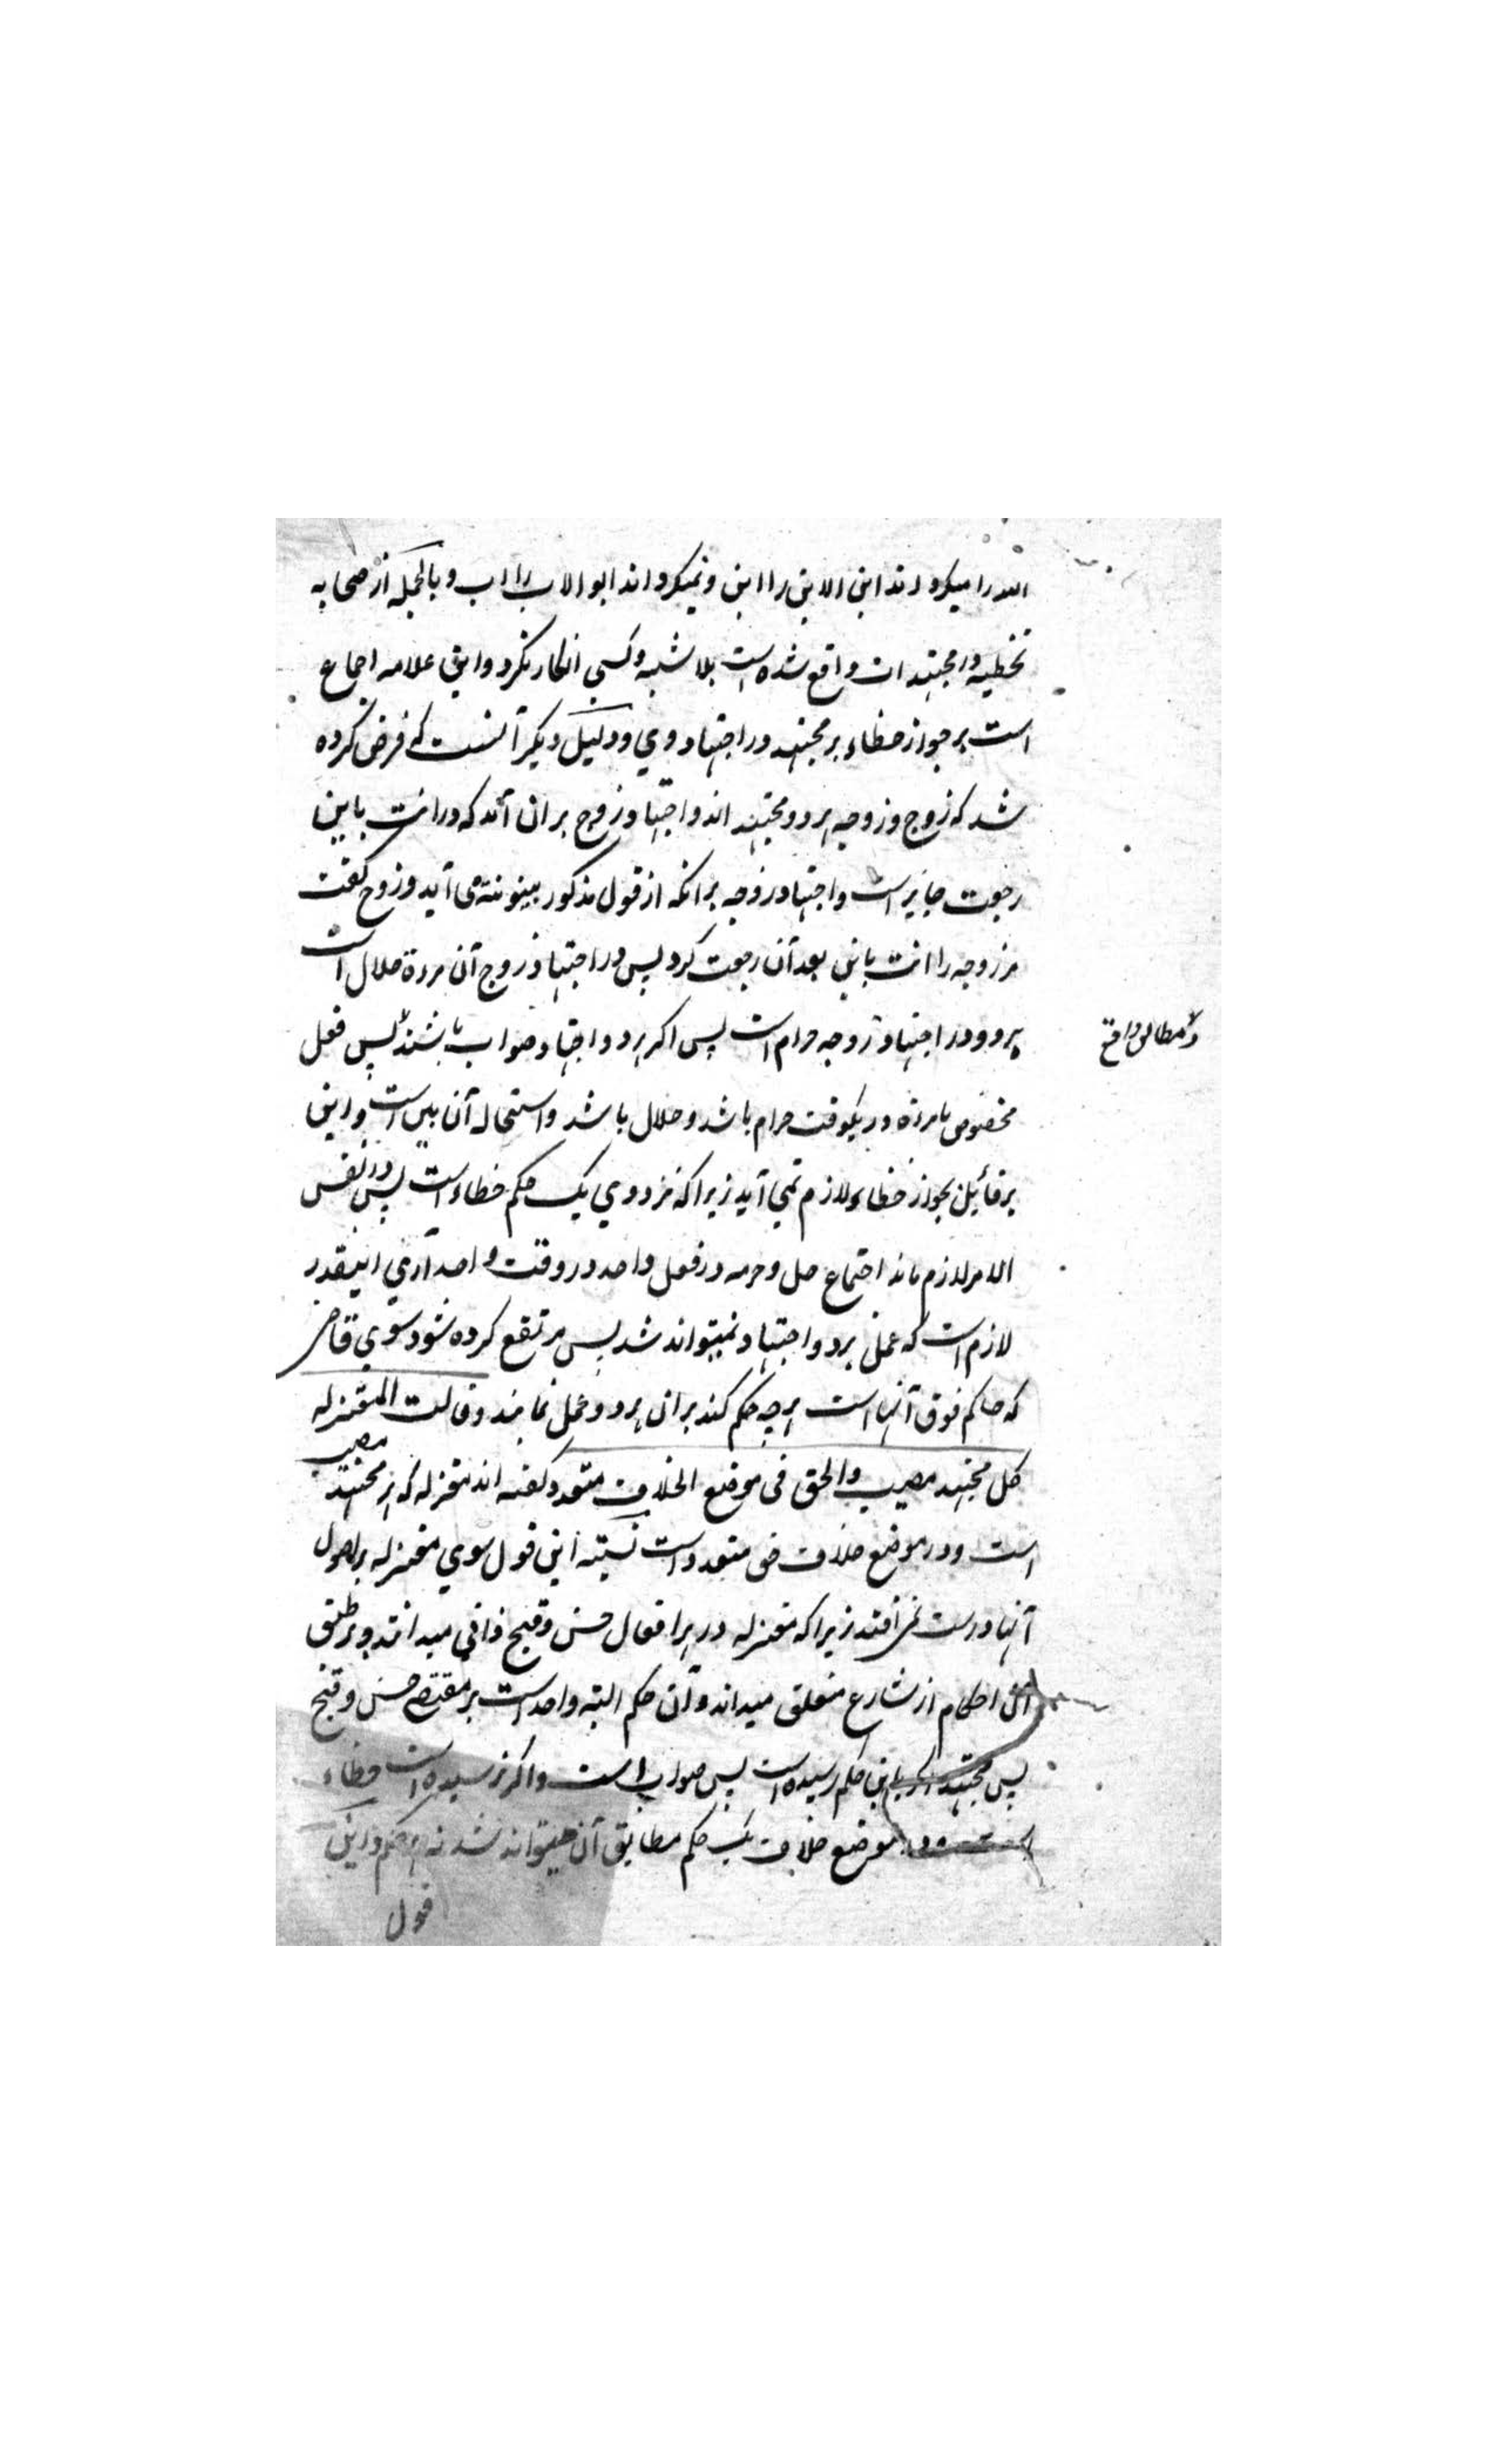 الله را میکرداند ابن الابن را ابن و نمیکرداند ابو الاب را اب و بالجمله از صحابه
تخطیه در مجتهدات واقع شده است بلا شبه و کسی انکار نکرد و این علامه اجماع
است بر جواز خطاء بر مجتهد در اجتهاد وي و دلیل دیکر آنست که فرض کرده
شد که زوج و زوجه هر دو مجتهد اند و اجتهاد زوج بران آند که در انت باین
رجعت جایز است و اجتهاد زوجه برانکه از قول مذکور بینونته می آید و زوج کفت
مر زوجه را انت باین بعد آن رجعت کرد پس در اجتهاد زوج آن مرءة حلال است
برو و در اجتهاد زوجه حرام است پس اکر هر دو اجتهاد صواب باشند پس فعل
و مطابق واقع
مخصوص بامرءة در یکوقت حرام باشد و حلال باشد و استحاله آن بین است و این
بر قائلین بجواز خطاء لازم نمي آید زیرا که نزد وي یک حکم خطاء است پس در نفس
الامر لازم ماند اجتماع حل و حرمه در فعل واحد در وقت واحد آري اینقدر
لازم است که عمل بهر دو اجتهاد نمیتواند شد پس مرتفع کرده شود سوي قاضی
که حاکم فوق آنها است هرچه حکم کند بران هر دو عمل نمایند و قالت المعتزله
کل مجتهد مصیب والحق فی موضع الخلاف متعدد کفته اند معتزله که هر مجتهد مصیب
است و در موضع خلاف حق متعدد است نسبته این قول سوي معتزله بر اصول
آنها درست نمی افتد زیرا که معتزله در هر افعال حسن و قبح ذاتي میدانند و بر طبق
آن احکام از شارع متعلق میداند و آن حکم البته واحد است بر مقتضی حسن و قبح
پس مجتهد اکر باین حکم رسیده است پس صواب است و اکر نرسیده است خطاء
است و در موضع خلاف یک حکم مطابق آن میتواند شد نه هر حکم و این
قول